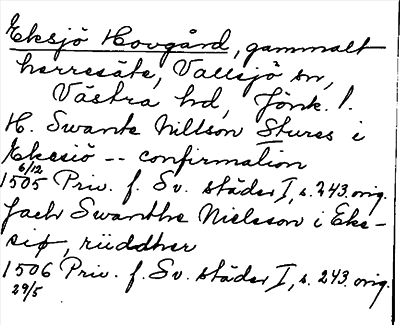 Eksjö Hovgård, gammalt
herresäte, Vallsjö sn,
Västra hd, Jönk. l.
H. Swante Nillson Stures i
Ekesiö -- confirmation
6/12
1505 Priv. f. Sv. städer I, s. 243. orig.
Jach Swanthe Nielsson i Eke-
siø, riiddher
1506 Priv. f. Sv. städer I, s. 243. orig.
29/5